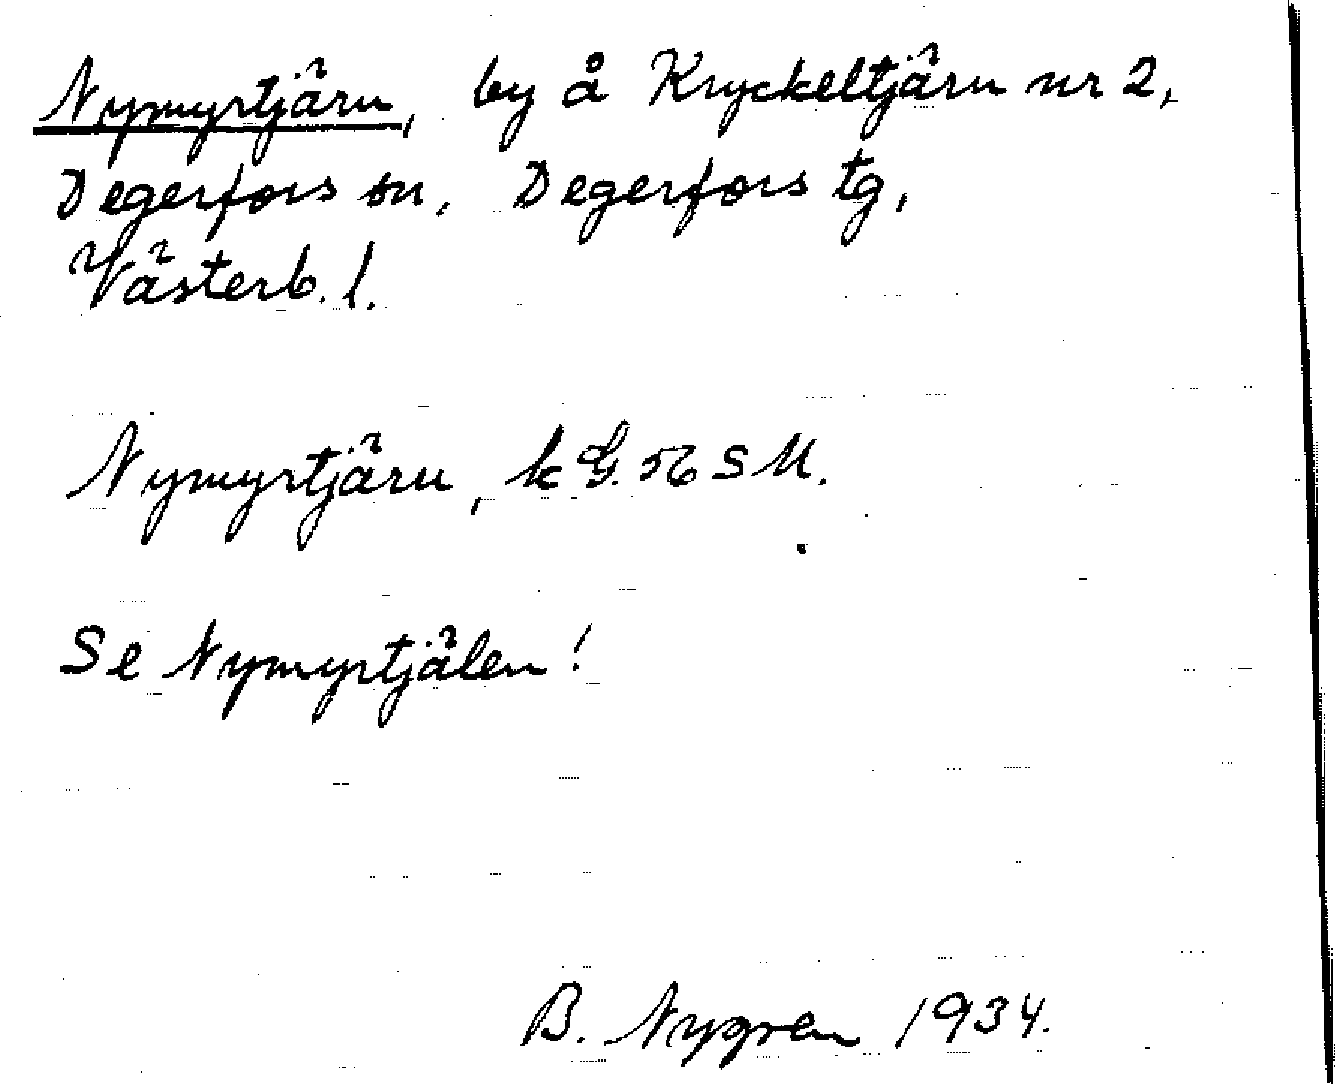 Nymyrtjärn, by å Kryckeltjärn nr 2,
Degerfors sn, Degerfors tg,
Västerb. l.
Nymyrtjärn, k G. 56 S M.
Se Nymyrtjälen!
B. Nygren 1934.